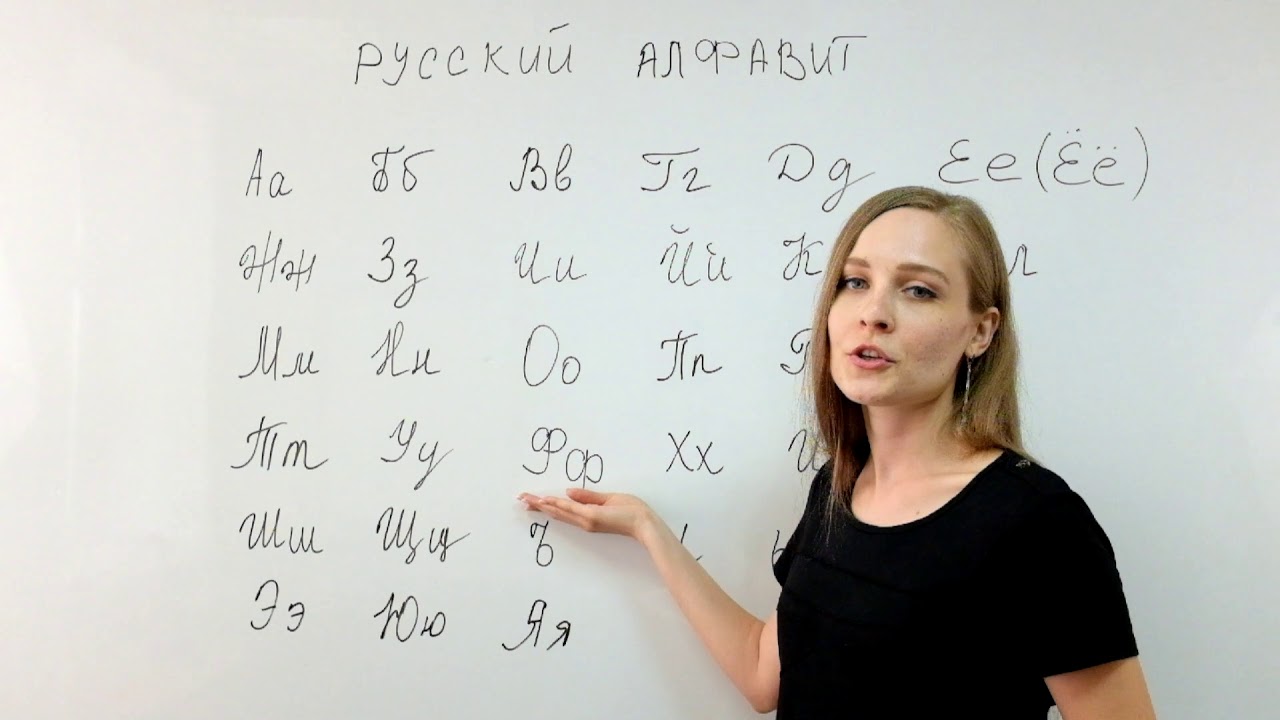 РУССКИЙ АЛФАВИТ
Аа Бб Вв Гг Дд Ее (Ёё)
Жж Зз Ии Йй К л
Мм Нн Оо Пп
Тт Уу Фф Хх
Шш Щщ ъ
Ээ Юю Яя